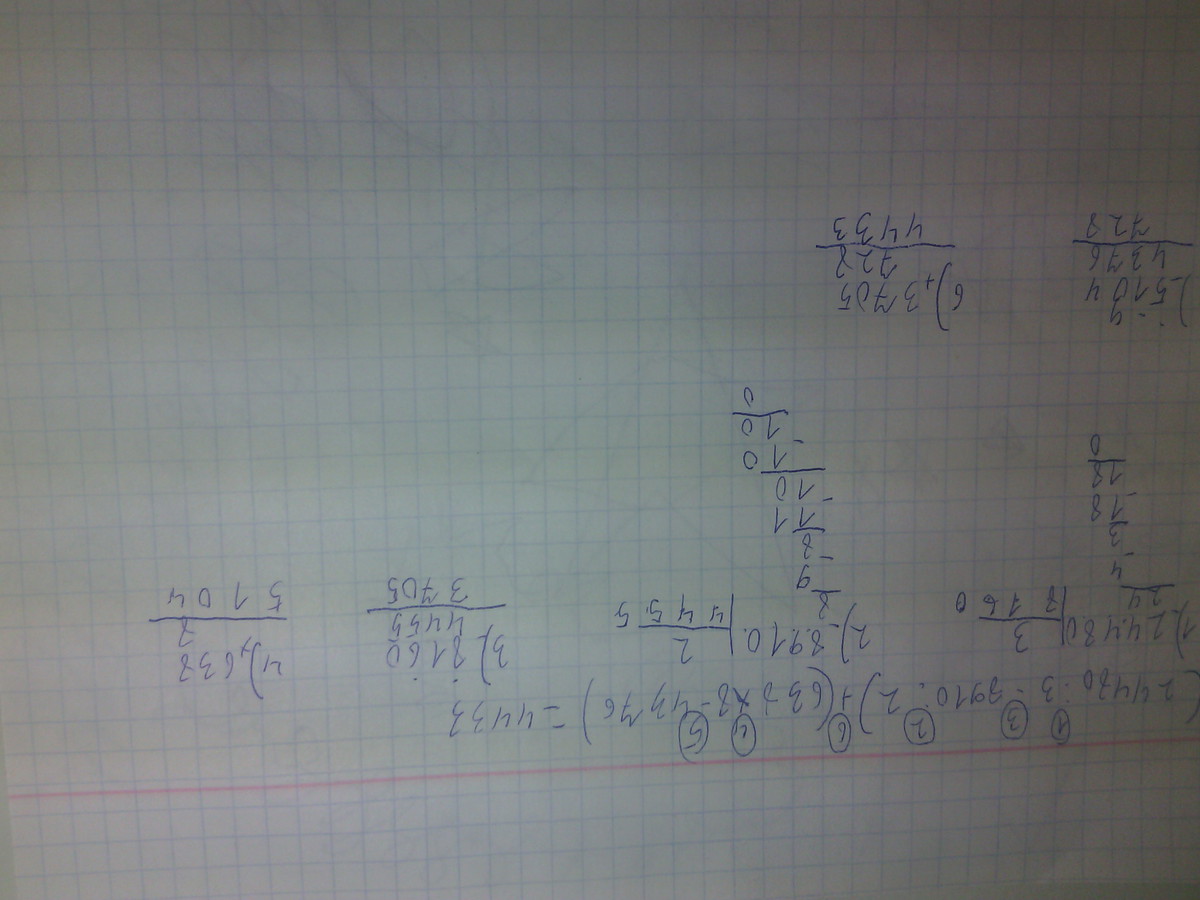 1 3 2 6 4 5
(24480:3-8910:2)+(638×8-4376)=4433
1) 24480 | 3
24 | 8160
-4
3
-18
18
0
2) -8910 | 2
8 | 4455
-9
8
-11
10
-10
10
0
3) -8160
4455
3705
4) ×638
8
5104
9
) -5104
4376
728
6) +3705
728
4433